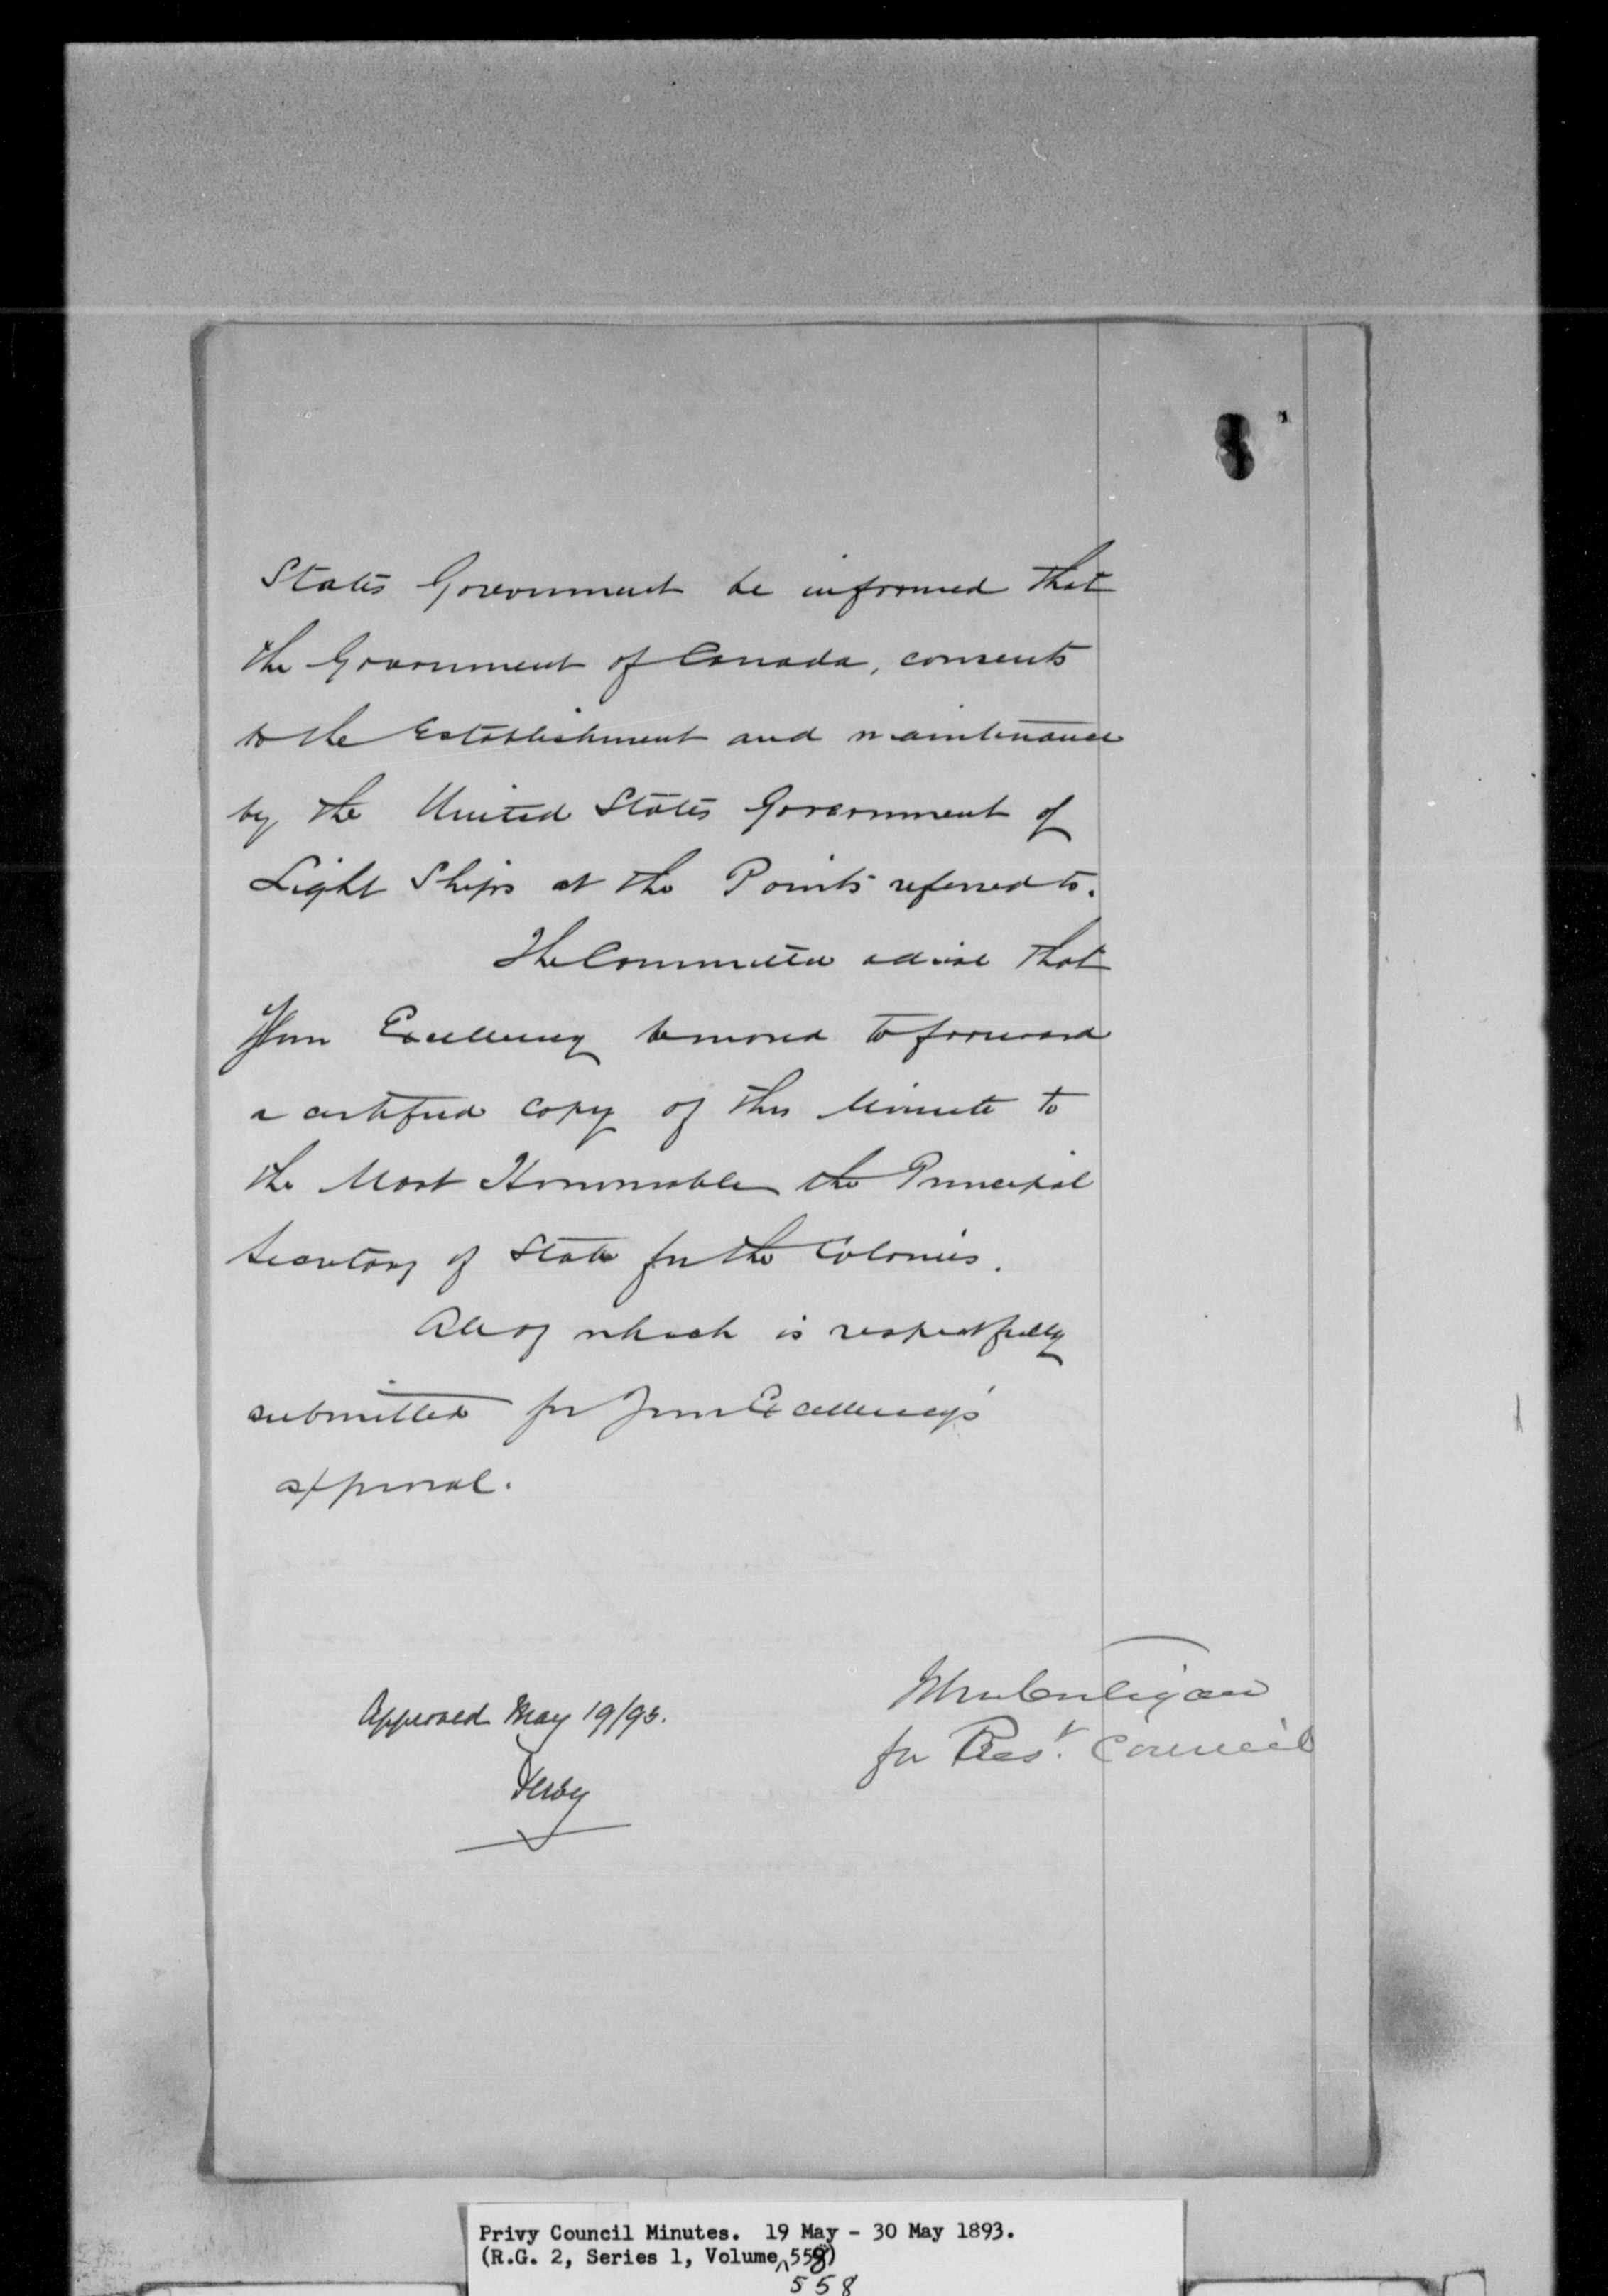 States Government be informed that
the Government of Canada, consents
to the Establishment and maintenance
by the United States Government of
Light Ships at the Points referred to.
The Committee advise that
Your Excellency be moved to forward
a certified copy of this Minute to
the Most Honourable the Principal
Secretary of State for the Colonies.
All of which is respectfully
submitted for Your Excellency's
approval.
for Prest. Council
Approved May 19/93.
Derby
Privy Council Minutes. 19 May - 30 May 1893.
(R.G. 2, Series 1, Volume 558)
558